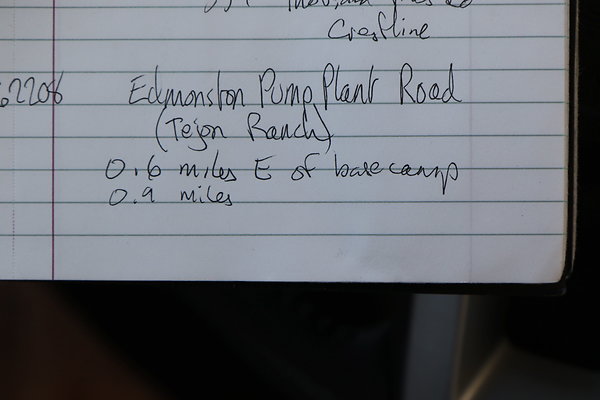 Crestline
62208 Edmonston Pump Plant Road
(Tejon Ranch)
0.6 miles E of basecamp
0.9 miles